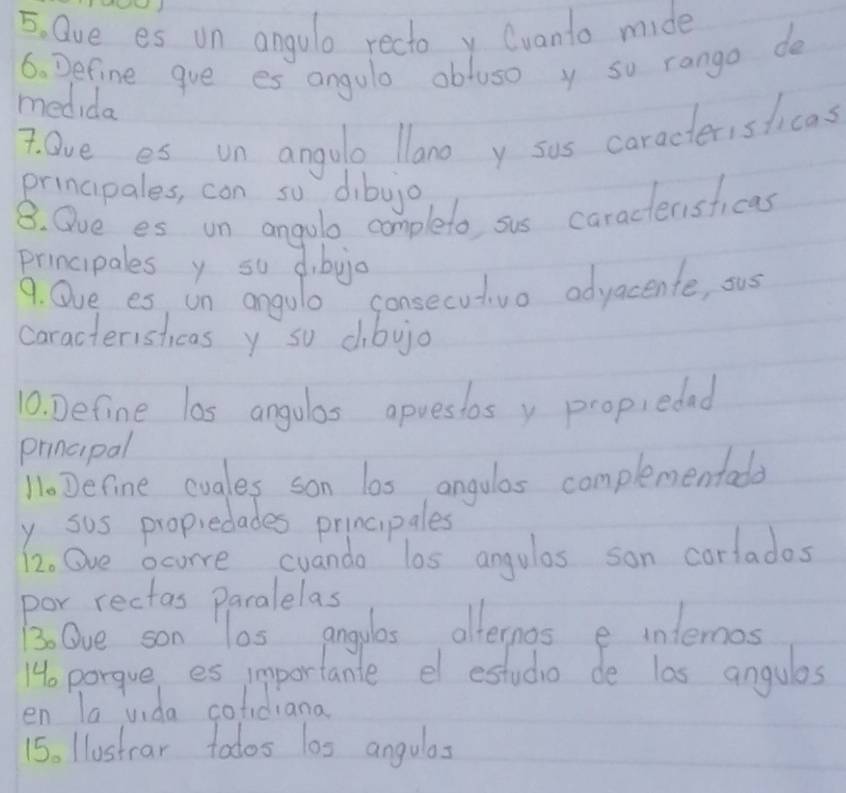 5. Que es un angulo recto y Cuanto mide
6. Define que es angulo obtuso y su rango de
medida
7. Que es un angulo llano y sus caracteristicas
principales, con su dibujo
8. Que es un angulo completo, sus caracteristicas
principales y su dibujo
9. Que es un angulo consecutivo adyacente, sus
caracteristicas y su dibujo
10. Define los angulos apuestos y propiedad
principal
11. Define cuales son los angulos complementado
y sus propiedades principales
12. Que ocurre cuando los angulos son cortados
por rectas paralelas
13. Que son los angulos alternos e internos
14. porque es importante el estudio de los angulos
en la vida cotidiana
15. Ilustrar todos los angulos